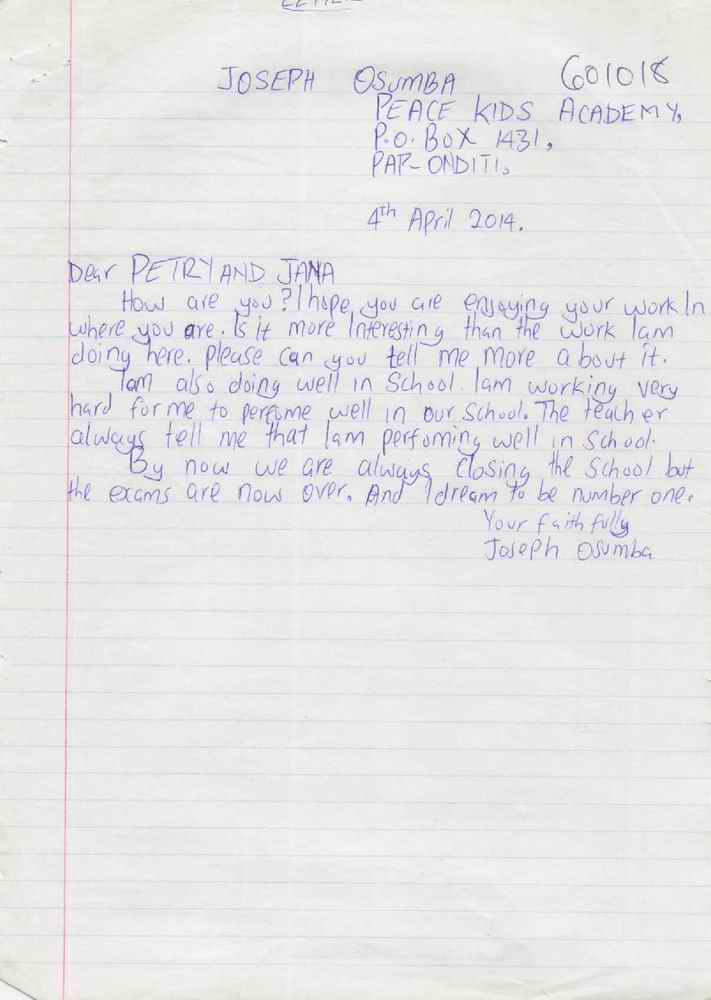 JOSEPH OSUMBA 601018
PEACE KIDS ACADEMY,
P.O. BOX 1431,
PAP-ONDITI,
4th April 2014.
Dear PETRY AND JANA
How are you? I hope you are enjoying your work In
where you are. Is it more Interesting than the work Iam
doing here. please can you tell me more about it.
Iam also doing well in School. Iam working very
hard for me to perfome well in our School. The teacher
always tell me that Iam perfoming well in School.
By now we are always closing the School but
the exams are now over. And I dream to be number one.
Your faithfully
Joseph Osumba